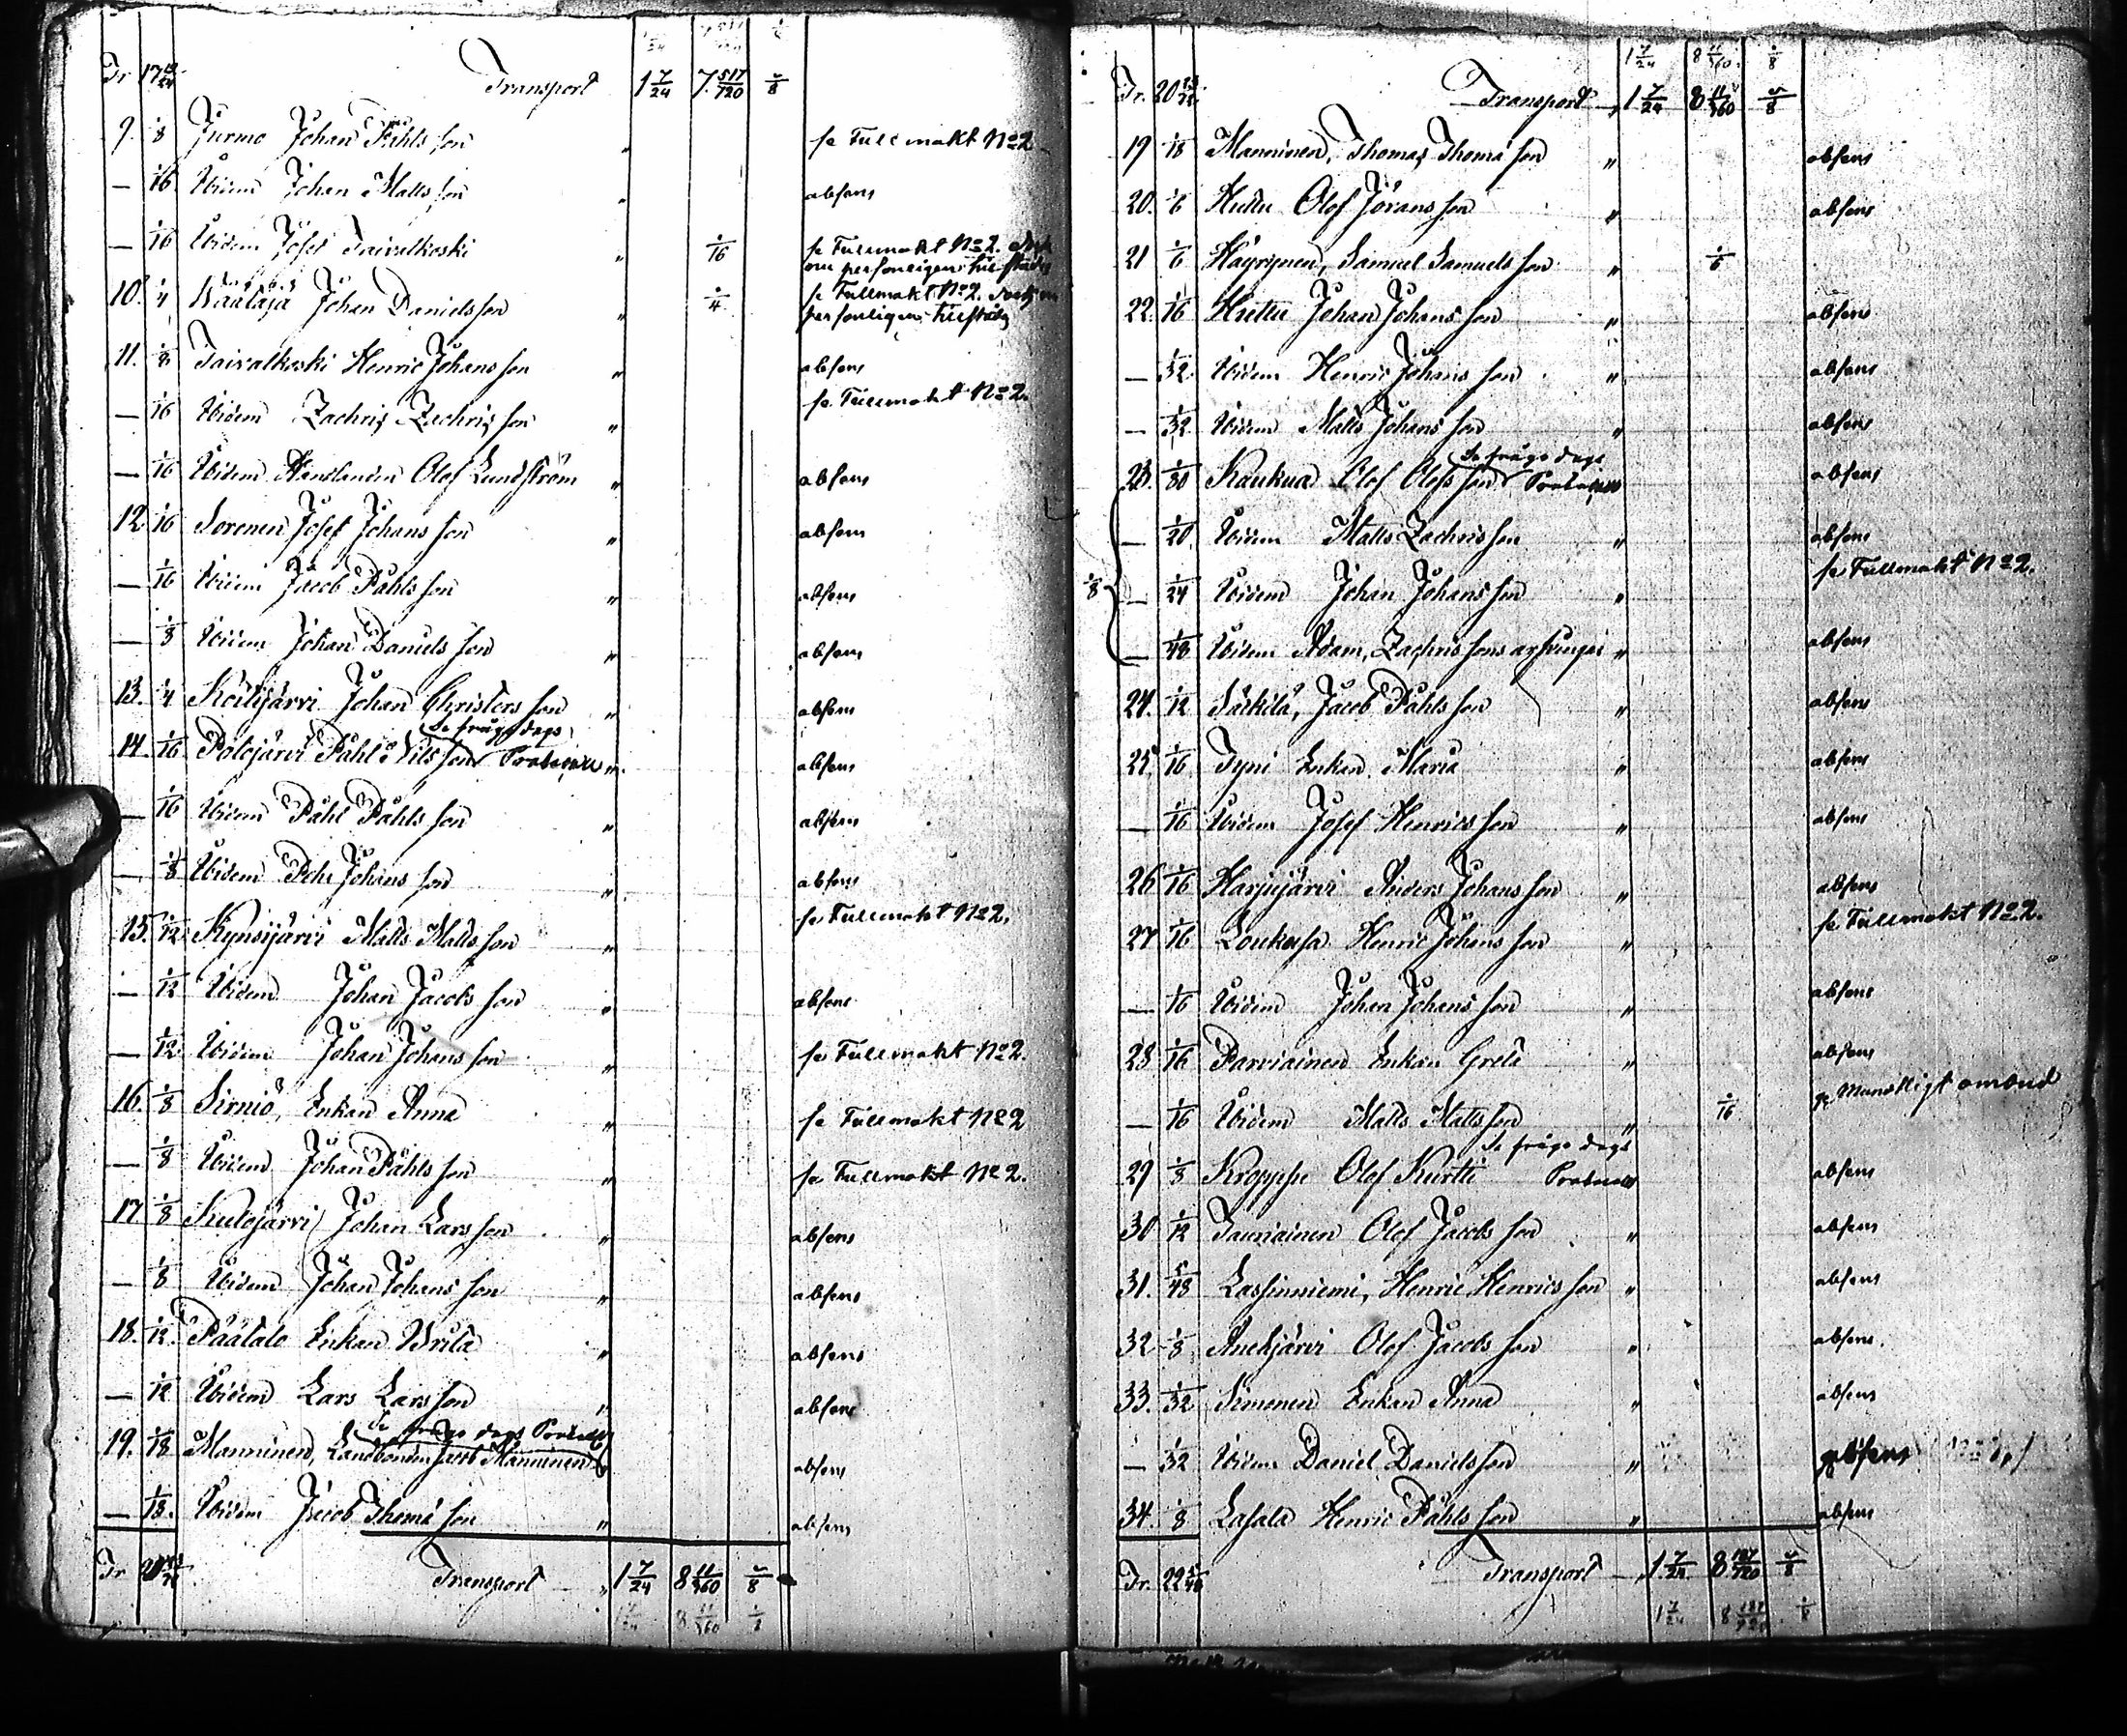 Tr 17 19/24 Transport 1 7/24 7 517/720 1/8
9. 1/8 Jurmo Johan Påhlsson " se Fullmakt No 2
— 1/16 Ibidem Johan Mattsson " absens
— 1/16 Ibidem Josef Taivalkoski " 1/16 se Fullmakt No 2.
om personligen tillstädes
10. 1/4 Määtäjä Johan Danielsson " 1/4 se Fullmakt No 2.
personligen tillstädes
11. 1/8 Taivalkoski Henric Johansson " absens
— 1/16 Ibidem Zachris Zachrisson " se Fullmakt No 2.
— 1/16 Ibidem Handlanden Olof Lundström " absens
12. 1/16 Soronen Josef Johansson " absens
— 1/16 Ibidem Jacob Påhlsson " absens
— 1/8 Ibidem Johan Danielsson " absens
13. 1/4 Köilijärvi Johan Christersson " absens
Se fråge dags
14. 1/16 Polojärvi Påhl Nilsson " absens
— 1/16 Ibidem Påhl Påhlsson " absens
— 1/8 Ibidem Pehr Johansson " absens
15. 1/12 Kynsijärvi Matts Mattsson " se Fullmakt No 2.
— 1/12 Ibidem Johan Jacobsson " absens
— 1/12 Ibidem Johan Johansson " se Fullmakt No 2.
16. 1/8 Sirniö, Enkan Anna " se Fullmakt No 2
— 1/8 Ibidem Johan Påhlsson " se Fullmakt No 2.
17 1/8 Kulojärvi Johan Larsson " absens
— 1/8 Ibidem Johan Johansson " absens
18. 1/12 Päätalo Enkan Brita " absens
— 1/12 Ibidem Lars Larsson " absens
Se fråge dags
19. 1/18 Manninen, Landbonden Jacob Manninen absens
— 1/18. Ibidem Jacob Thomasson " absens
Tr Transport " 1 7/24 8 11/360 1/8
1 7/24 8 11/360 1/8
1 7/24 8 11/360 1/8
Tr. 20 Transport " 1 7/24 8 11/360 1/8
19 1/18 Manninen, Thomas Thomasson " absens
20. 1/6 Huttu Olof Jöransson " absens
21 1/6 Häyrynen, Samuel Samuelsson " 1/6
22. 1/16 Huttu Johan Johansson " absens
— 1/32 Ibidem Henric Johansson " absens
— 1/32 Ibidem Matts Johansson " absens
Se fråge dags
23. 1/80 Kaukua Olof Olofsson absens
— 1/20 Ibidem Matts Zachrisson " absens
1/8 — 1/24 Ibidem Johan Johansson " se Fullmakt No 2.
— 1/48 Ibidem Adam Zachrissons arfvingar " absens
24. 1/12 Särkelä, Jacob Påhlsson " absens
25. 1/16 Tyni Enkan Maria " absens
— 1/16 Ibidem Josef Henricsson " absens
26 1/16 Harjujärvi Anders Johansson " absens
27 1/16 Loukusa Henric Johansson " se Fullmakt No 2.
— 1/16 Ibidem Johan Johansson " absens
28 1/16 Parviainen Enkan Greta " absens
— 1/16 Ibidem Matts Mattsson " 1/16 pr Mundtligt ombud
Se fråge dags
29 1/8 Kroppe Olof Kurtti absens
30 1/12 Tauriainen Olof Jacobsson " absens
31. 5/48 Lassinniemi, Henric Henricsson " absens
32 1/8 Auchjärvi Olof Jacobsson " absens.
33. 1/32 Simonen Enkan Anna " absens
— 1/32 Ibidem Daniel Danielsson " absens
34. 1/8 Lasala Henric Påhlsson " absens
Tr. 22 Transport " 1 7/24 8 187/720 1/8
1 7/24 8 187/720 1/8